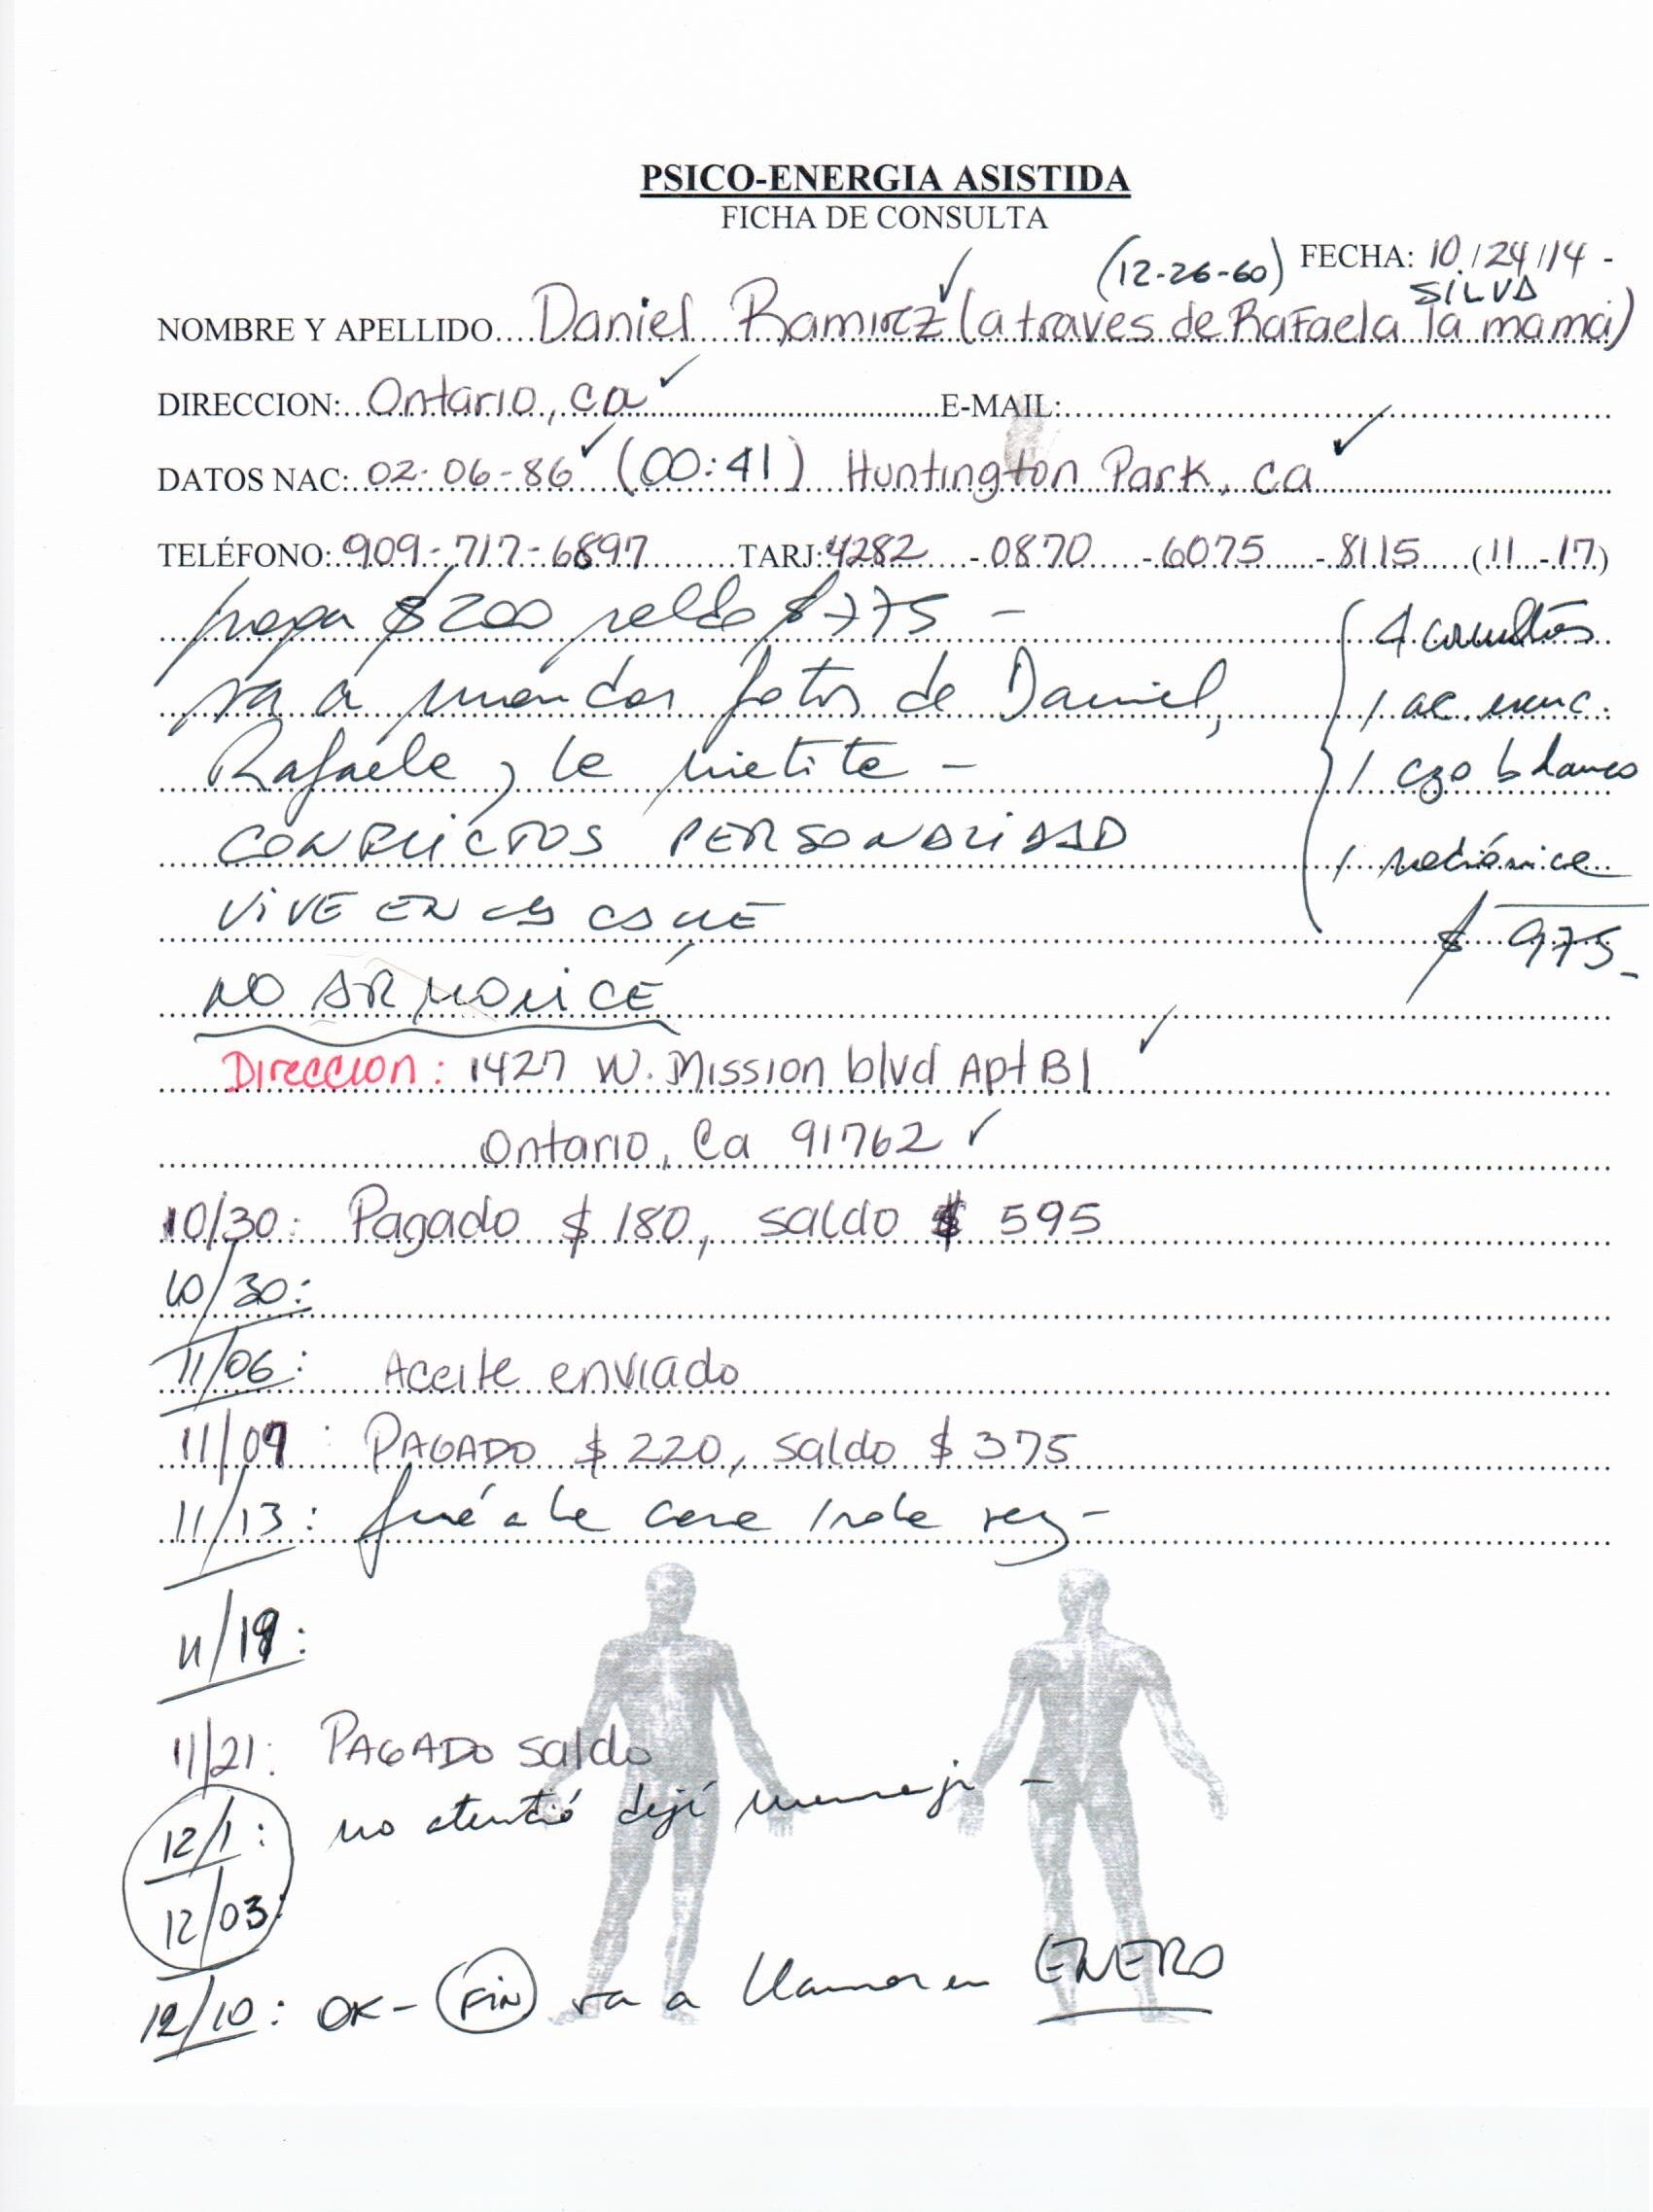 PSICO-ENERGIA ASISTIDA
FICHA DE CONSULTA
(12-26-60) FECHA: 10/24/14 -
SILVA
NOMBRE Y APELLIDO....Daniel Ramirez (a traves de Rafaela la mamá)
DIRECCION: Ontario, ca E-MAIL:
DATOS NAC: 02-06-86 (00:41) Huntington Park, ca
TELÉFONO: 909-717-6897 TARJ: 4282 - 0870 - 6075 - 8115 (11 - 17)
paga $200 saldo $775 - 4 consultas
va a mandar fotos de Daniel, 1 ac.
Rafaela y la - 1 czo blanco
CONFLICTOS PERSONALIDAD 1 radiónica
VIVE EN
$ 975-
NO ARMONICÉ
Direccion: 1427 W. Mission blvd Apt B1
Ontario, Ca 91762
10/30: Pagado $ 180, saldo $ 595
10/30:
11/06: Aceite enviado
11/09: PAGADO $ 220, saldo $ 375
11/13: fué a la
11/19:
11/21: PAGADO saldo
12/1: no atendió dejé mensaje -
12/03:
12/10: OK - FIN va a llamar en ENERO